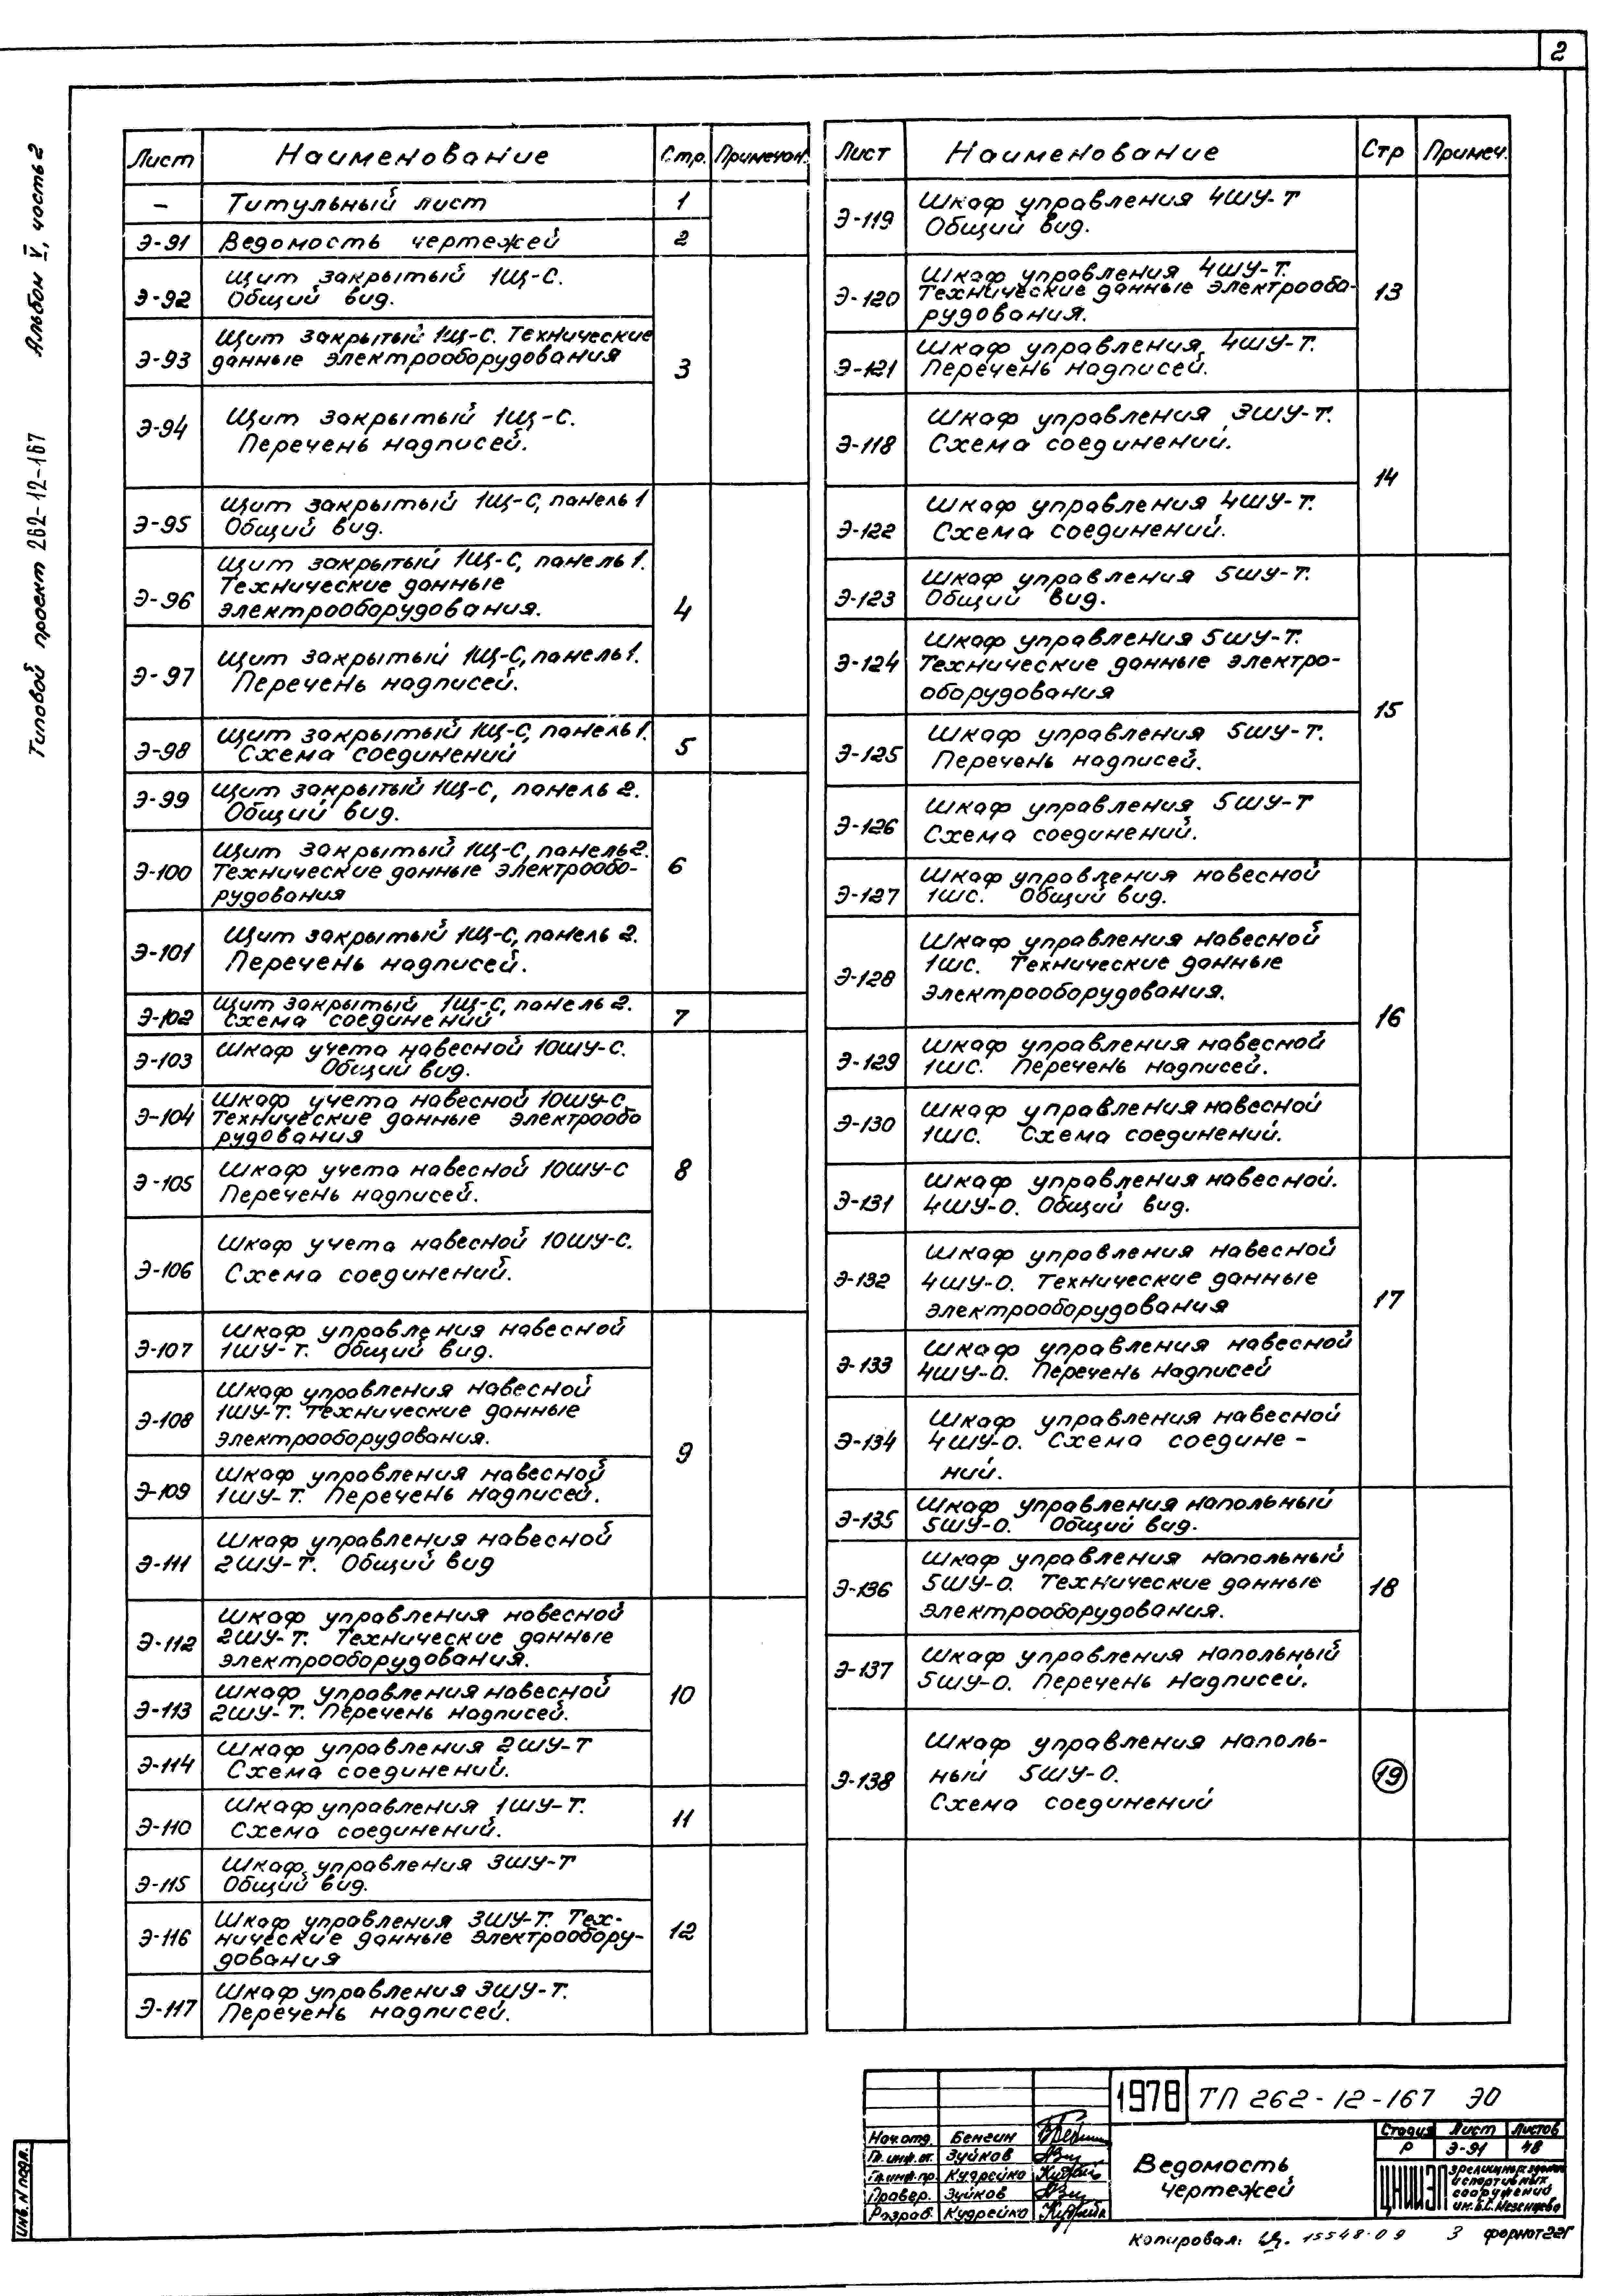 2
Альбом V, часть 2
Типовой проект 262-12-167
Лист Наименование Стр. Примечан.
— Титульный лист 1
Э-91 Ведомость чертежей 2
Щит закрытый 1Щ-С.
Э-92 Общий вид.
Щит закрытый 1Щ-С. Технические
Э-93 данные электрооборудования
3
Э-94 Щит закрытый 1Щ-С.
Перечень надписей.
Щит закрытый 1Щ-С, панель 1
Э-95 Общий вид.
Щит закрытый 1Щ-С, панель 1.
Технические данные
Э-96 электрооборудования.
4
Щит закрытый 1Щ-С, панель 1.
Э-97 Перечень надписей.
Щит закрытый 1Щ-С, панель 1.
Э-98 Схема соединений 5
Э-99 Щит закрытый 1Щ-С, панель 2.
Общий вид.
Щит закрытый 1Щ-С, панель 2.
Э-100 Технические данные электрообо-
рудования
6
Э-101 Щит закрытый 1Щ-С, панель 2.
Перечень надписей.
Щит закрытый 1Щ-С, панель 2.
Э-102 Схема соединений 7
Э-103 Шкаф учета навесной 10ШУ-С.
Общий вид.
Шкаф учета навесной 10ШУ-С.
Э-104 Технические данные электрообо
рудования
Э-105 Шкаф учета навесной 10ШУ-С
Перечень надписей.
8
Шкаф учета навесной 10ШУ-С.
Э-106 Схема соединений.
Шкаф управления навесной
Э-107 1ШУ-Т. Общий вид.
Шкаф управления навесной
Э-108 1ШУ-Т. Технические данные
электрооборудования.
9
Шкаф управления навесной
Э-109 1ШУ-Т. Перечень надписей.
Шкаф управления навесной
Э-111 2ШУ-Т. Общий вид
Шкаф управления навесной
Э-112 2ШУ-Т. Технические данные
электрооборудования.
Шкаф управления навесной
Э-113 2ШУ-Т. Перечень надписей.
10
Шкаф управления 2ШУ-Т
Э-114 Схема соединений.
Шкаф управления 1ШУ-Т.
Э-110 Схема соединений.
11
Шкаф управления 3ШУ-Т
Э-115 Общий вид.
Шкаф управления 3ШУ-Т. Тех-
Э-116 нические данные электрообору-
дования
12
Шкаф управления 3ШУ-Т.
Э-117 Перечень надписей.
Лист Наименование Стр Примеч.
Шкаф управления 4ШУ-Т
Э-119 Общий вид.
Шкаф управления 4ШУ-Т.
Э-120 Технические данные электрообо-
рудования.
13
Шкаф управления 4ШУ-Т.
Э-121 Перечень надписей.
Шкаф управления 3ШУ-Т.
Э-118 Схема соединений.
14
Шкаф управления 4ШУ-Т.
Э-122 Схема соединений.
Шкаф управления 5ШУ-Т.
Э-123 Общий вид.
Шкаф управления 5ШУ-Т.
Э-124 Технические данные электро-
оборудования
15
Шкаф управления 5ШУ-Т.
Э-125 Перечень надписей.
Шкаф управления 5ШУ-Т
Э-126 Схема соединений.
Шкаф управления навесной
Э-127 1ШС. Общий вид.
Шкаф управления навесной
1ШС. Технические данные
Э-128 электрооборудования.
16
Шкаф управления навесной
Э-129 1ШС. Перечень надписей.
Шкаф управления навесной
Э-130 1ШС. Схема соединений.
Шкаф управления навесной.
Э-131 4ШУ-О. Общий вид.
Шкаф управления навесной
Э-132 4ШУ-О. Технические данные
электрооборудования
17
Шкаф управления навесной
Э-133 4ШУ-О. Перечень надписей
Шкаф управления навесной
Э-134 4ШУ-О. Схема соедине-
ний.
Шкаф управления напольный
Э-135 5ШУ-О. Общий вид.
Шкаф управления напольный
Э-136 5ШУ-О. Технические данные
электрооборудования.
18
Шкаф управления напольный
Э-137 5ШУ-О. Перечень надписей.
Шкаф управления наполь-
Э-138 ный 5ШУ-О.
Схема соединений
19
1978 ТП 262-12-167 ЭО
Нач.отд. Бенгин
Гл.инж.от. Зуйков
Гл.инж.пр. Кудрейко
Провер. Зуйков
Разраб. Кудрейко
Ведомость
чертежей
Стадия Лист Листов
Р Э-91 48
ЦНИИЭП зрелищных зданий
и спортивных
сооружений
им. Б.С. Мезенцева
Инв. N подл.
Копировал: 15548-09 3 формат 22Г